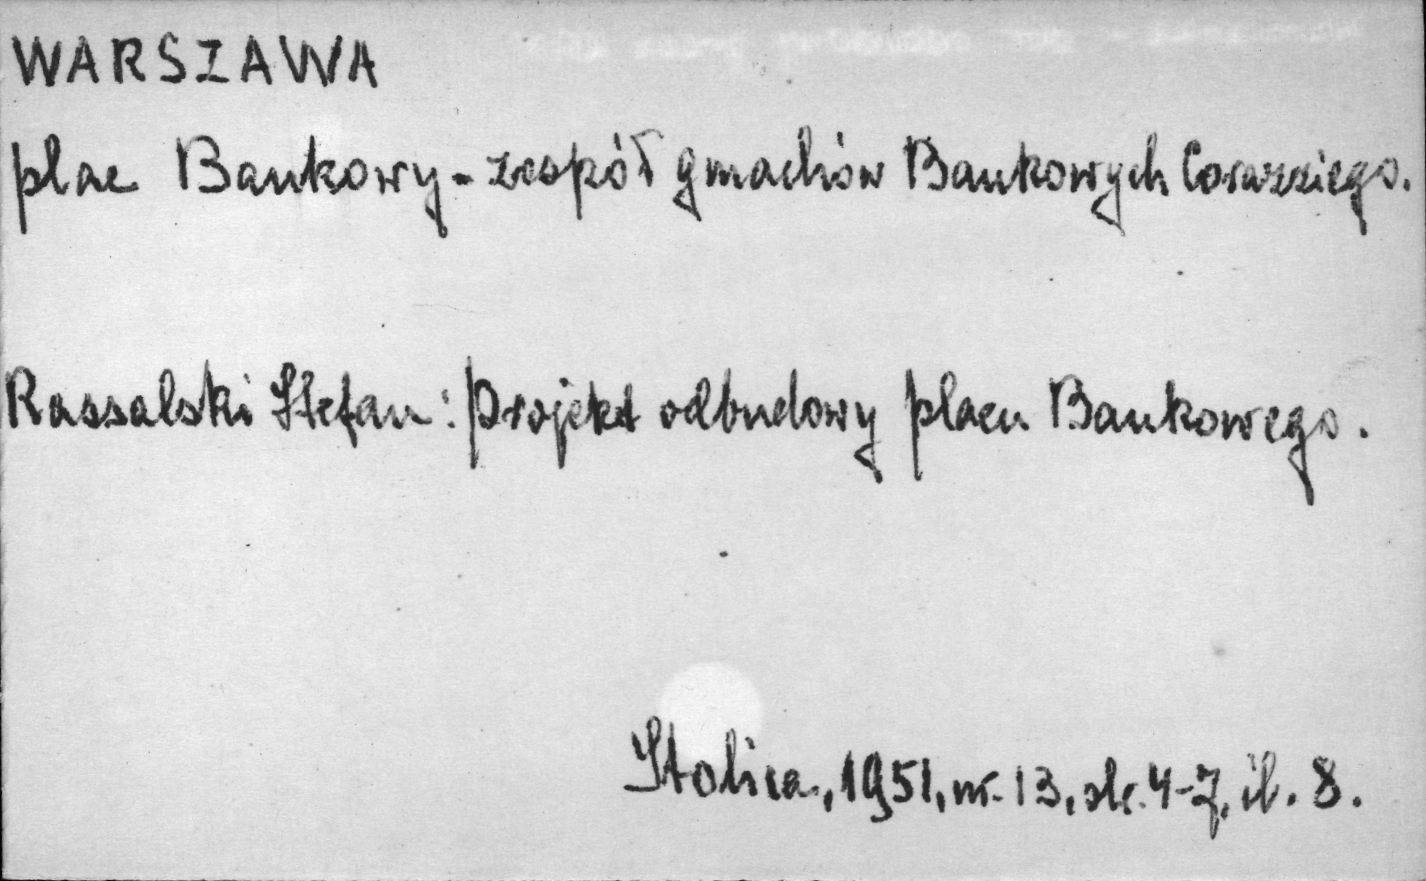 WARSZAWA
plac Bankowy - zespół gmachów Bankowych Corazziego.
Rassalski Stefan: Projekt odbudowy placu Bankowego.
Stolica, 1951, nr. 13, str. 4-7, il. 8.